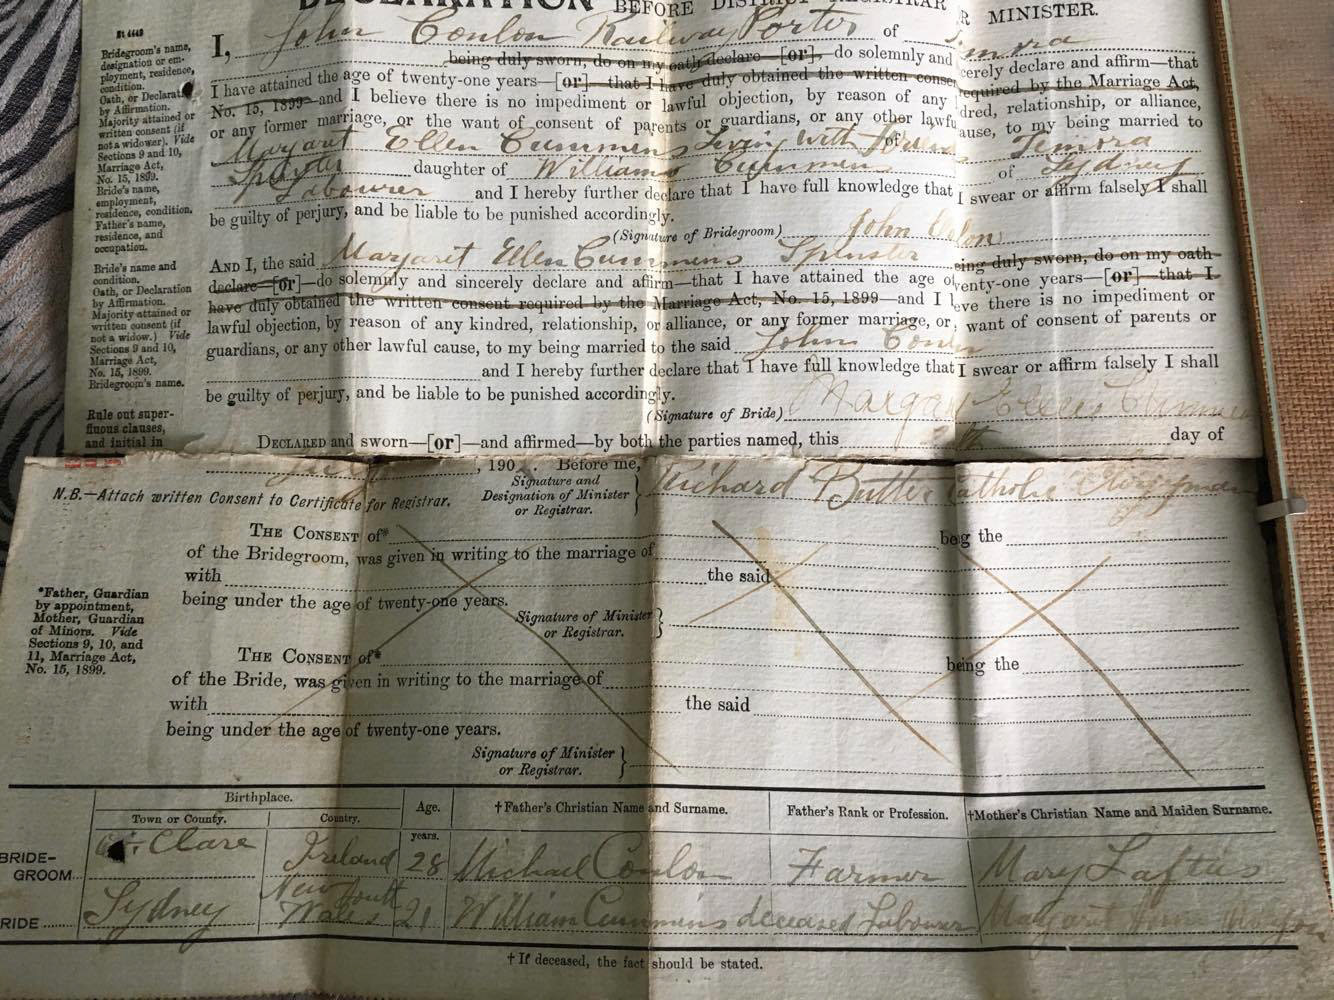 DECLARATION BEFORE DISTRICT REGISTRAR R MINISTER.
No 4449
Bridegroom's name,
designation or em-
ployment, residence,
condition.
Oath, or Declarat
by Affirmation.
Majority attained or
written consent (if
not a widower). Vide
Sections 9 and 10,
Marriage Act,
No. 15, 1899.
Bride's name,
employment,
residence, condition.
Father's name,
residence, and
occupation.
I, John Conlon Railway Porter of Temora
being duly sworn, do on my oath declare—[or], do solemnly and cerely declare and affirm—that
I have attained the age of twenty-one years—[or]—that I have duly obtained the written conse equired by the Marriage Act,
No. 15, 1899—and I believe there is no impediment or lawful objection, by reason of any dred, relationship, or alliance,
or any former marriage, or the want of consent of parents or guardians, or any other lawfu ause, to my being married to
Margaret Ellen Cummens Living with friends of Temora
Spinster daughter of William Cummen of Sydney
Labourer and I hereby further declare that I have full knowledge that I swear or affirm falsely I shall
be guilty of perjury, and be liable to be punished accordingly.
(Signature of Bridegroom) John Conlon
Bride's name and
condition.
Oath, or Declaration
by Affirmation.
Majority attained or
written consent (if
not a widow.) Vide
Sections 9 and 10,
Marriage Act,
No. 15, 1899.
Bridegroom's name.
AND I, the said Margaret Ellen Cummens Spinster eing duly sworn, do on my oath
declare—[or]—do solemnly and sincerely declare and affirm—that I have attained the age of venty-one years—[or]—that I
have duly obtained the written consent required by the Marriage Act, No. 15, 1899—and I b eve there is no impediment or
lawful objection, by reason of any kindred, relationship, or alliance, or any former marriage, or want of consent of parents or
guardians, or any other lawful cause, to my being married to the said John Conlon
and I hereby further declare that I have full knowledge that I swear or affirm falsely I shall
be guilty of perjury, and be liable to be punished accordingly.
(Signature of Bride) Margaret Ellen Cummens
Rule out super-
fluous clauses,
and initial in
DECLARED and sworn—[or]—and affirmed—by both the parties named, this day of
, 190 . Before me, Richard Butler Catholic Clergyman
Signature and
Designation of Minister
or Registrar.
N.B.—Attach written Consent to Certificate for Registrar.
THE CONSENT of* being the
of the Bridegroom, was given in writing to the marriage of
with the said
being under the age of twenty-one years.
Signature of Minister
or Registrar.
*Father, Guardian
by appointment,
Mother, Guardian
of Minors. Vide
Sections 9, 10, and
11, Marriage Act,
No. 15, 1899.
THE CONSENT of* being the
of the Bride, was given in writing to the marriage of
with the said
being under the age of twenty-one years.
Signature of Minister
or Registrar.
Birthplace. Age. †Father's Christian Name and Surname. Father's Rank or Profession. †Mother's Christian Name and Maiden Surname.
Town or County. Country.
years.
BRIDE-
GROOM Co. Clare Ireland 28 Michael Conlon Farmer Mary Laftus
RIDE Sydney New South Wales 21 William Cummins deceased Labourer Margaret
† If deceased, the fact should be stated.